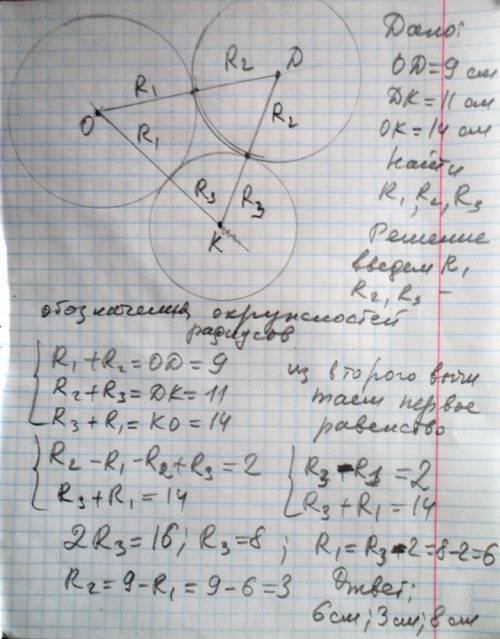 R₁ R₂ D
O R₁ R₂
R₃ R₃
K
Дано:
OD = 9 см
DK = 11 см
OK = 14 см
Найти
R₁, R₂, R₃
Решение
введем R₁
R₂, R₃ –
обозначения окружностей
радиусов
R₁ + R₂ = OD = 9
R₂ + R₃ = DK = 11
R₃ + R₁ = KO = 14
из второго вычи
таем первое
равенство
R₂ – R₁ – R₂ + R₃ = 2
R₃ + R₁ = 14
R₃ – R₁ = 2
R₃ + R₁ = 14
2R₃ = 16; R₃ = 8; R₁ = R₃ – 2 = 8 – 2 = 6
R₂ = 9 – R₁ = 9 – 6 = 3 Ответ:
6 см; 3 см; 8 см